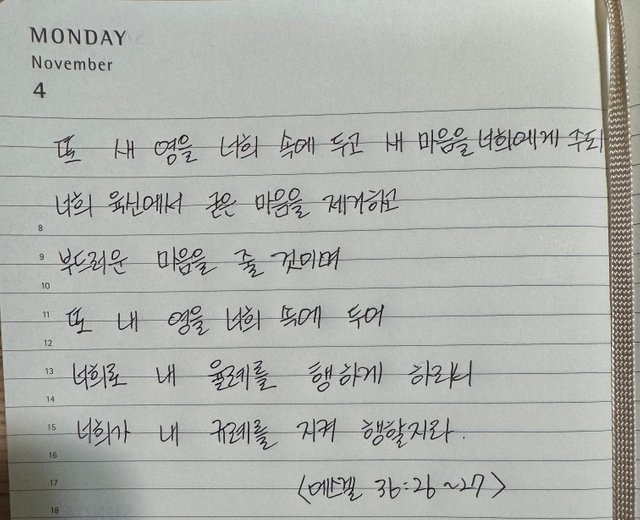 MONDAY
November
4
또 새 영을 너희 속에 두고 새 마음을 너희에게 주되
너희 육신에서 굳은 마음을 제거하고
8
9 부드러운 마음을 줄 것이며
10
11 또 내 영을 너희 속에 두어
12
13 너희로 내 율례를 행하게 하리니
14
15 너희가 내 규례를 지켜 행할지라.
16
17 <에스겔 36:26~27>
18